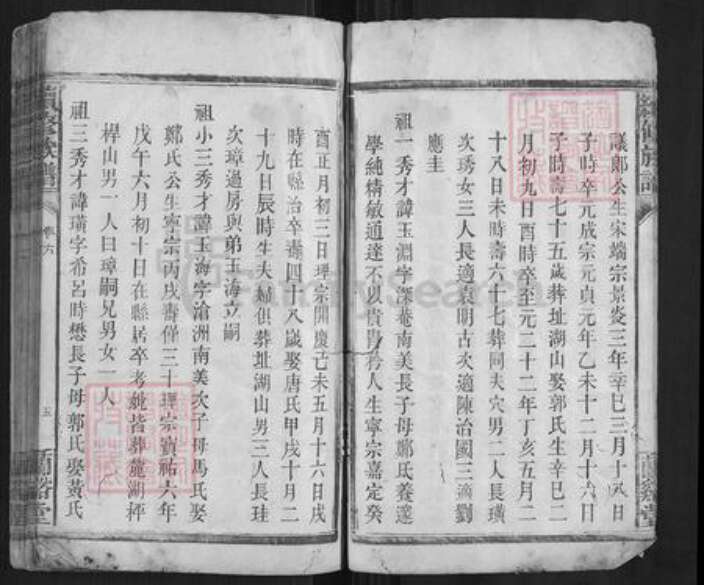 議郎公生宋端宗景炎三年辛巳三月十八日
子時卒元成宗元貞元年乙未十二月十六日
子時壽七十五歲葬址湖山娶郭氏生辛巳二
月初九日酉時卒至元二十二年丁亥五月二
十八日未時壽六十七葬同夫穴男二人長璜
次琇女三人長適袁明古次適陳治國三適劉
應圭
祖一秀才諱玉淵字深菴南美長子母鄭氏養邃
學純精敏通達不以貴驕矜人生寧宗嘉定癸
酉正月初三日理宗開慶己未五月十六日戌
時在縣治卒壽四十八歲娶唐氏甲戌十月二
十九日辰時生夫婦俱葬址湖山男三人長珪
次璋過房與弟玉海立嗣
祖小三秀才諱玉海字滄洲南美次子母馬氏娶
鄭氏公生寧宗丙戌壽僅三十理宗寶祐六年
戊午六月初十日在縣居卒考妣皆葬施湖坪
桿山男一人曰璋嗣兄男女一人
祖三秀才諱璜字希呂時懋長子母郭氏娶黃氏
續修族譜
卷六
五
蘭谿堂